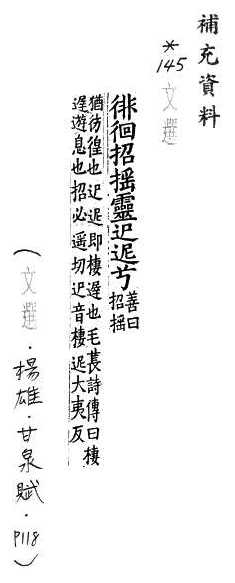 補充資料
*145 文選
徘徊招摇靈迟迡兮善曰招摇
猶彷徨也迟迡即棲遲也毛萇詩傳曰棲
遲遊息也招必遥切迟音棲迡大夷反
(文選·楊雄·甘泉賦·P118)